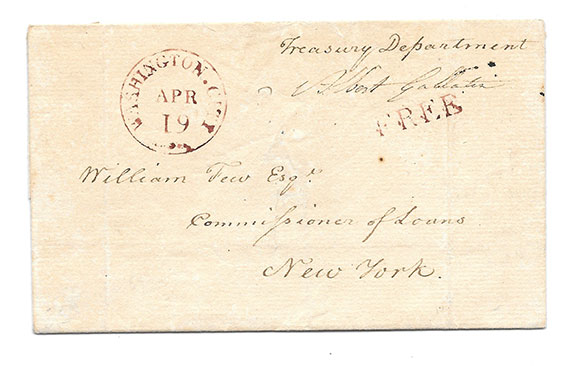 Treasury Department
Albert Gallatin
FREE
WASHINGTON·CITY
APR
19
William Few Esqr.
Commissioner of Loans
New York.